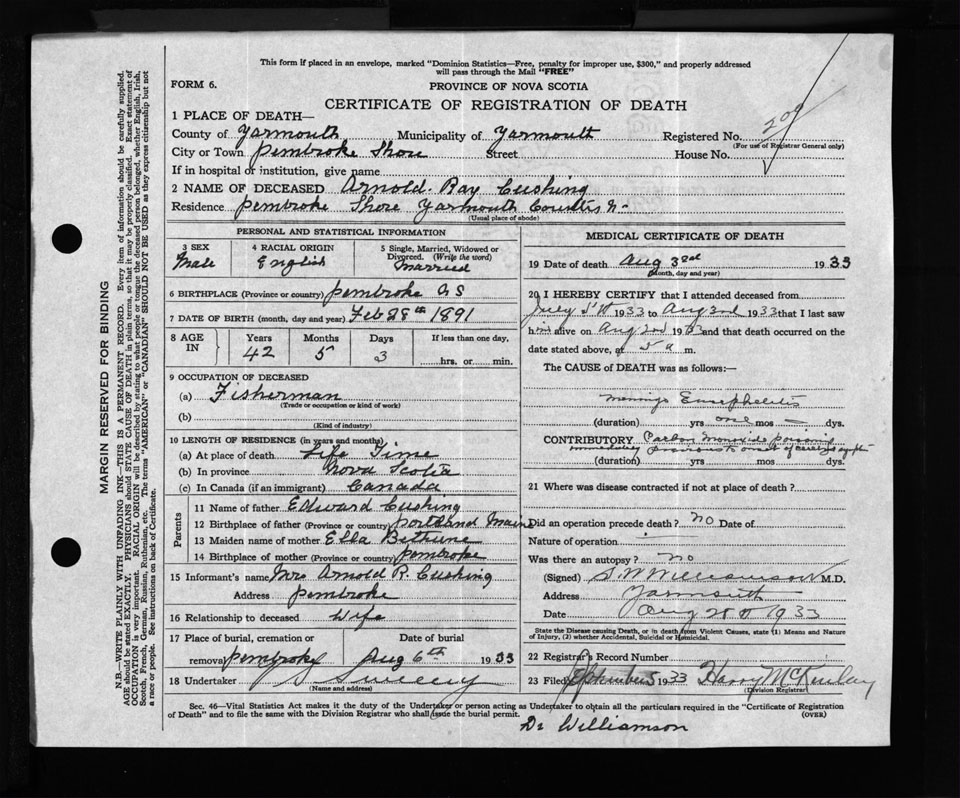 This form if placed in an envelope, marked "Dominion Statistics—Free, penalty for improper use, $300," and properly addressed
will pass through the Mail "FREE"
FORM 6.
PROVINCE OF NOVA SCOTIA
CERTIFICATE OF REGISTRATION OF DEATH
1 PLACE OF DEATH—
County of Yarmouth Municipality of Yarmouth Registered No. 209
(For use of Registrar General only)
City or Town Pembroke Shore Street House No.
If in hospital or institution, give name
2 NAME OF DECEASED Arnold Ray Cushing
Residence Pembroke Shore Yarmouth
(Usual place of abode)
PERSONAL AND STATISTICAL INFORMATION
3 SEX 4 RACIAL ORIGIN 5 Single, Married, Widowed or
Divorced. (Write the word)
Male English Married
6 BIRTHPLACE (Province or country) Pembroke NS
7 DATE OF BIRTH (month, day and year) Feb 28th 1891
8 AGE IN Years Months Days If less than one day,
42 5 3 hrs. or min.
9 OCCUPATION OF DECEASED
(a) Fisherman
(Trade or occupation or kind of work)
(b)
(Kind of industry)
10 LENGTH OF RESIDENCE (in years and months)
(a) At place of death Life Time
(b) In province Nova Scotia
(c) In Canada (if an immigrant) Canada
Parents
11 Name of father Edward Cushing
12 Birthplace of father (Province or country) Portland Main
13 Maiden name of mother Ella Bethune
14 Birthplace of mother (Province or country) Pembroke
15 Informant's name Mrs Arnold R. Cushing
Address Pembroke
16 Relationship to deceased Wife
17 Place of burial, cremation or Date of burial
removal Pembroke Aug 6th 1933
18 Undertaker S Sweeny
(Name and address)
MEDICAL CERTIFICATE OF DEATH
19 Date of death Aug 3rd 1933
(Month, day and year)
20 I HEREBY CERTIFY that I attended deceased from
July 1933 to Aug 3rd 1933 that I last saw
him alive on Aug 2nd 1933 and that death occurred on
date stated above, at 5 a m.
The CAUSE of DEATH was as follows:—
Meningo Encephelitis
(duration) yrs one mos — dys.
CONTRIBUTORY Carbon Monoxide poisoning
immediately previous to onset of
(duration) yrs mos dys.
21 Where was disease contracted if not at place of death?
Did an operation precede death? no Date of
Nature of operation
Was there an autopsy? no
(Signed) S. W. Williamson M.D.
Address Yarmouth
Date Aug 1933
State the Disease causing Death, or in death from Violent Causes, state (1) Means and Nature
of Injury, (2) whether Accidental, Suicidal or Homicidal.
22 Registrar's Record Number
23 Filed September 5 1933 Harry McKinlay
(Division Registrar)
Sec. 46—Vital Statistics Act makes it the duty of the Undertaker or person acting as Undertaker to obtain all the particulars required in the "Certificate of Registration
of Death" and to file the same with the Division Registrar who shall issue the burial permit. (OVER)
Dr Williamson
MARGIN RESERVED FOR BINDING
N.B.—WRITE PLAINLY WITH UNFADING INK—THIS IS A PERMANENT RECORD. Every item of information should be carefully supplied.
AGE should be stated EXACTLY. PHYSICIANS should STATE CAUSE OF DEATH in plain terms, so that it may be properly classified. Exact statement of
OCCUPATION is very important. RACIAL ORIGIN will be described by stating to what people or tongue the deceased person belonged, whether English, Irish,
Scotch, French, German, Russian, Ruthenian, etc. The terms "AMERICAN" or "CANADIAN" SHOULD NOT BE USED as they express citizenship but not
a race or people. See instructions on back of Certificate.